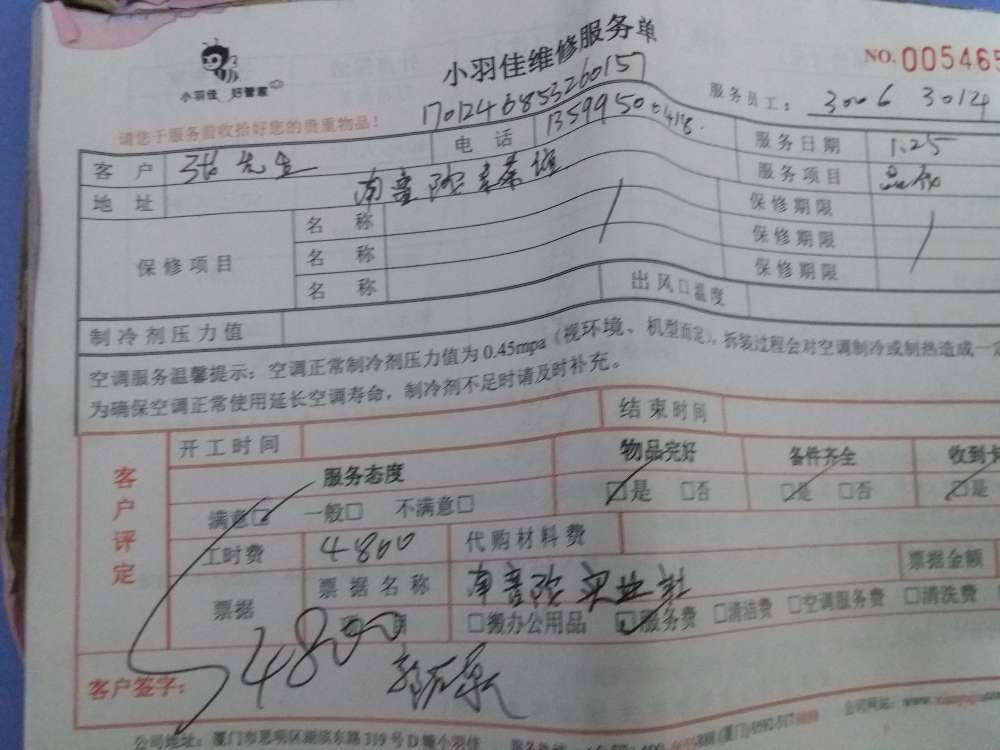 小羽佳维修服务单
小羽佳 好管家
NO. 005465
170124685326015
请您于服务前收拾好您的贵重物品!
服务员工: 3006 3014
客户 张先生 电话 服务日期 1.25
地址 服务项目
保修项目 名称 保修期限
名称 保修期限
名称 保修期限
制冷剂压力值 出风口温度
空调服务温馨提示:空调正常制冷剂压力值为0.45mpa(视环境、机型而定),拆装过程会对空调制冷或制热造成一定
为确保空调正常使用延长空调寿命,制冷剂不足时请及时补充。
客户评定
开工时间 结束时间
服务态度 物品完好 备件齐全 收到
满意□ 一般□ 不满意□ □是 □否 □是 □否 □是
工时费 4800 代购材料费
票据 票据名称 南音院实业社 票据金额
□搬办公用品 □服务费 □清洁费 □空调服务费 □清洗费
客户签字: 4800
公司地址:厦门市思明区湖滨东路319号D幢小羽佳
公司网站: